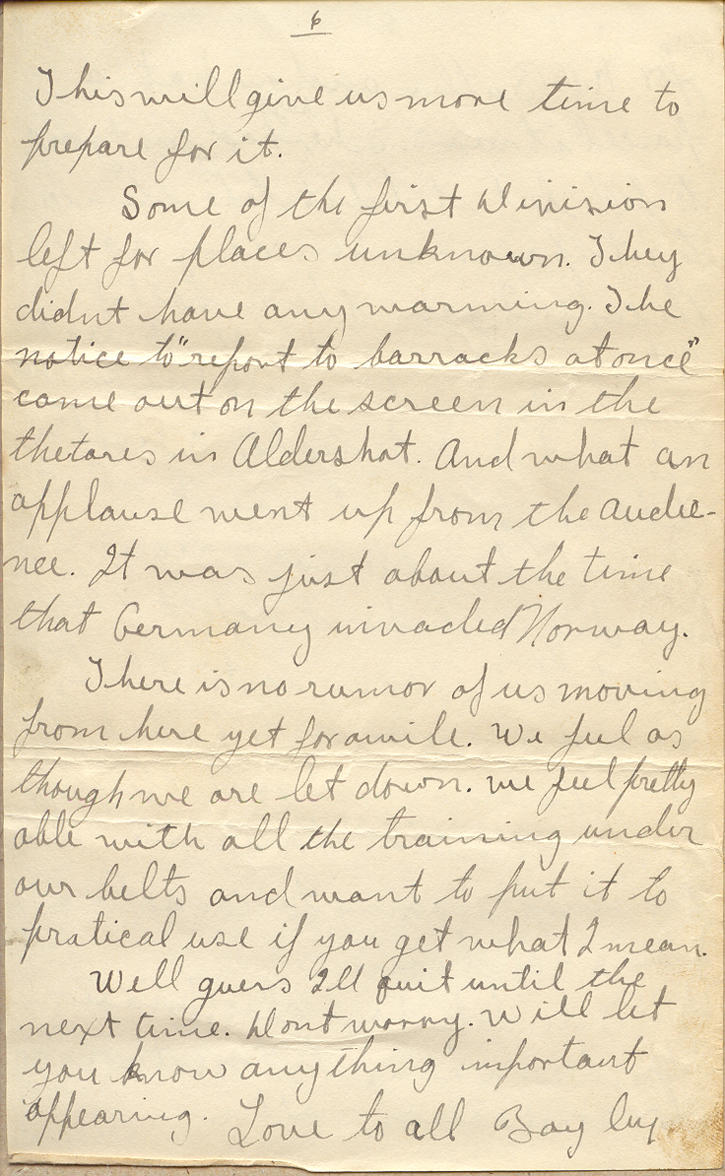 6
This will give us more time to
prepare for it.
Some of the first Division
left for places unknown. They
didnt have any warning. The
notice to "report to barracks at once"
came out on the screen in the
thetares in Aldershot. And what an
applause went up from the audie-
nce. It was just about the time
that Germany invaded Norway.
There is no rumor of us moving
from here yet for awile. We feel as
though we are let down. We feel pretty
able with all the training under
our belts and want to put it to
pratical use if you get what I mean.
Well guess Ill quit until the
next time. Dont worry. Will let
you know anything important
appearing. Love to all Bay